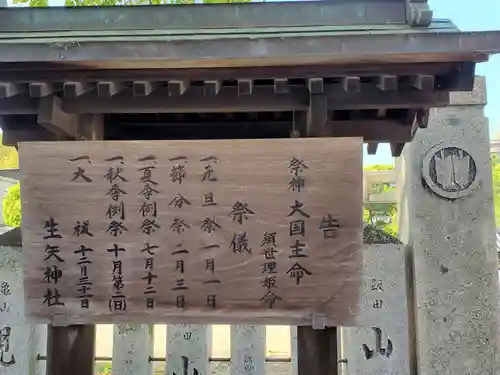 告
祭神 大国主命
須世理姫命
祭儀
一、元旦祭 一月一日
一、節分祭 二月三日
一、夏季例祭 七月十二日
一、秋季例祭 十月第二(日)
一、大祓 十二月三十一日
生矢神社
飯田
山
飯田
山
亀山